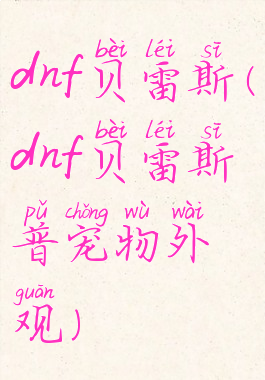 bèi léi sī
dnf贝雷斯(
bèi léi sī
dnf贝雷斯
pǔ chǒng wù wài
普宠物外
guān
观)